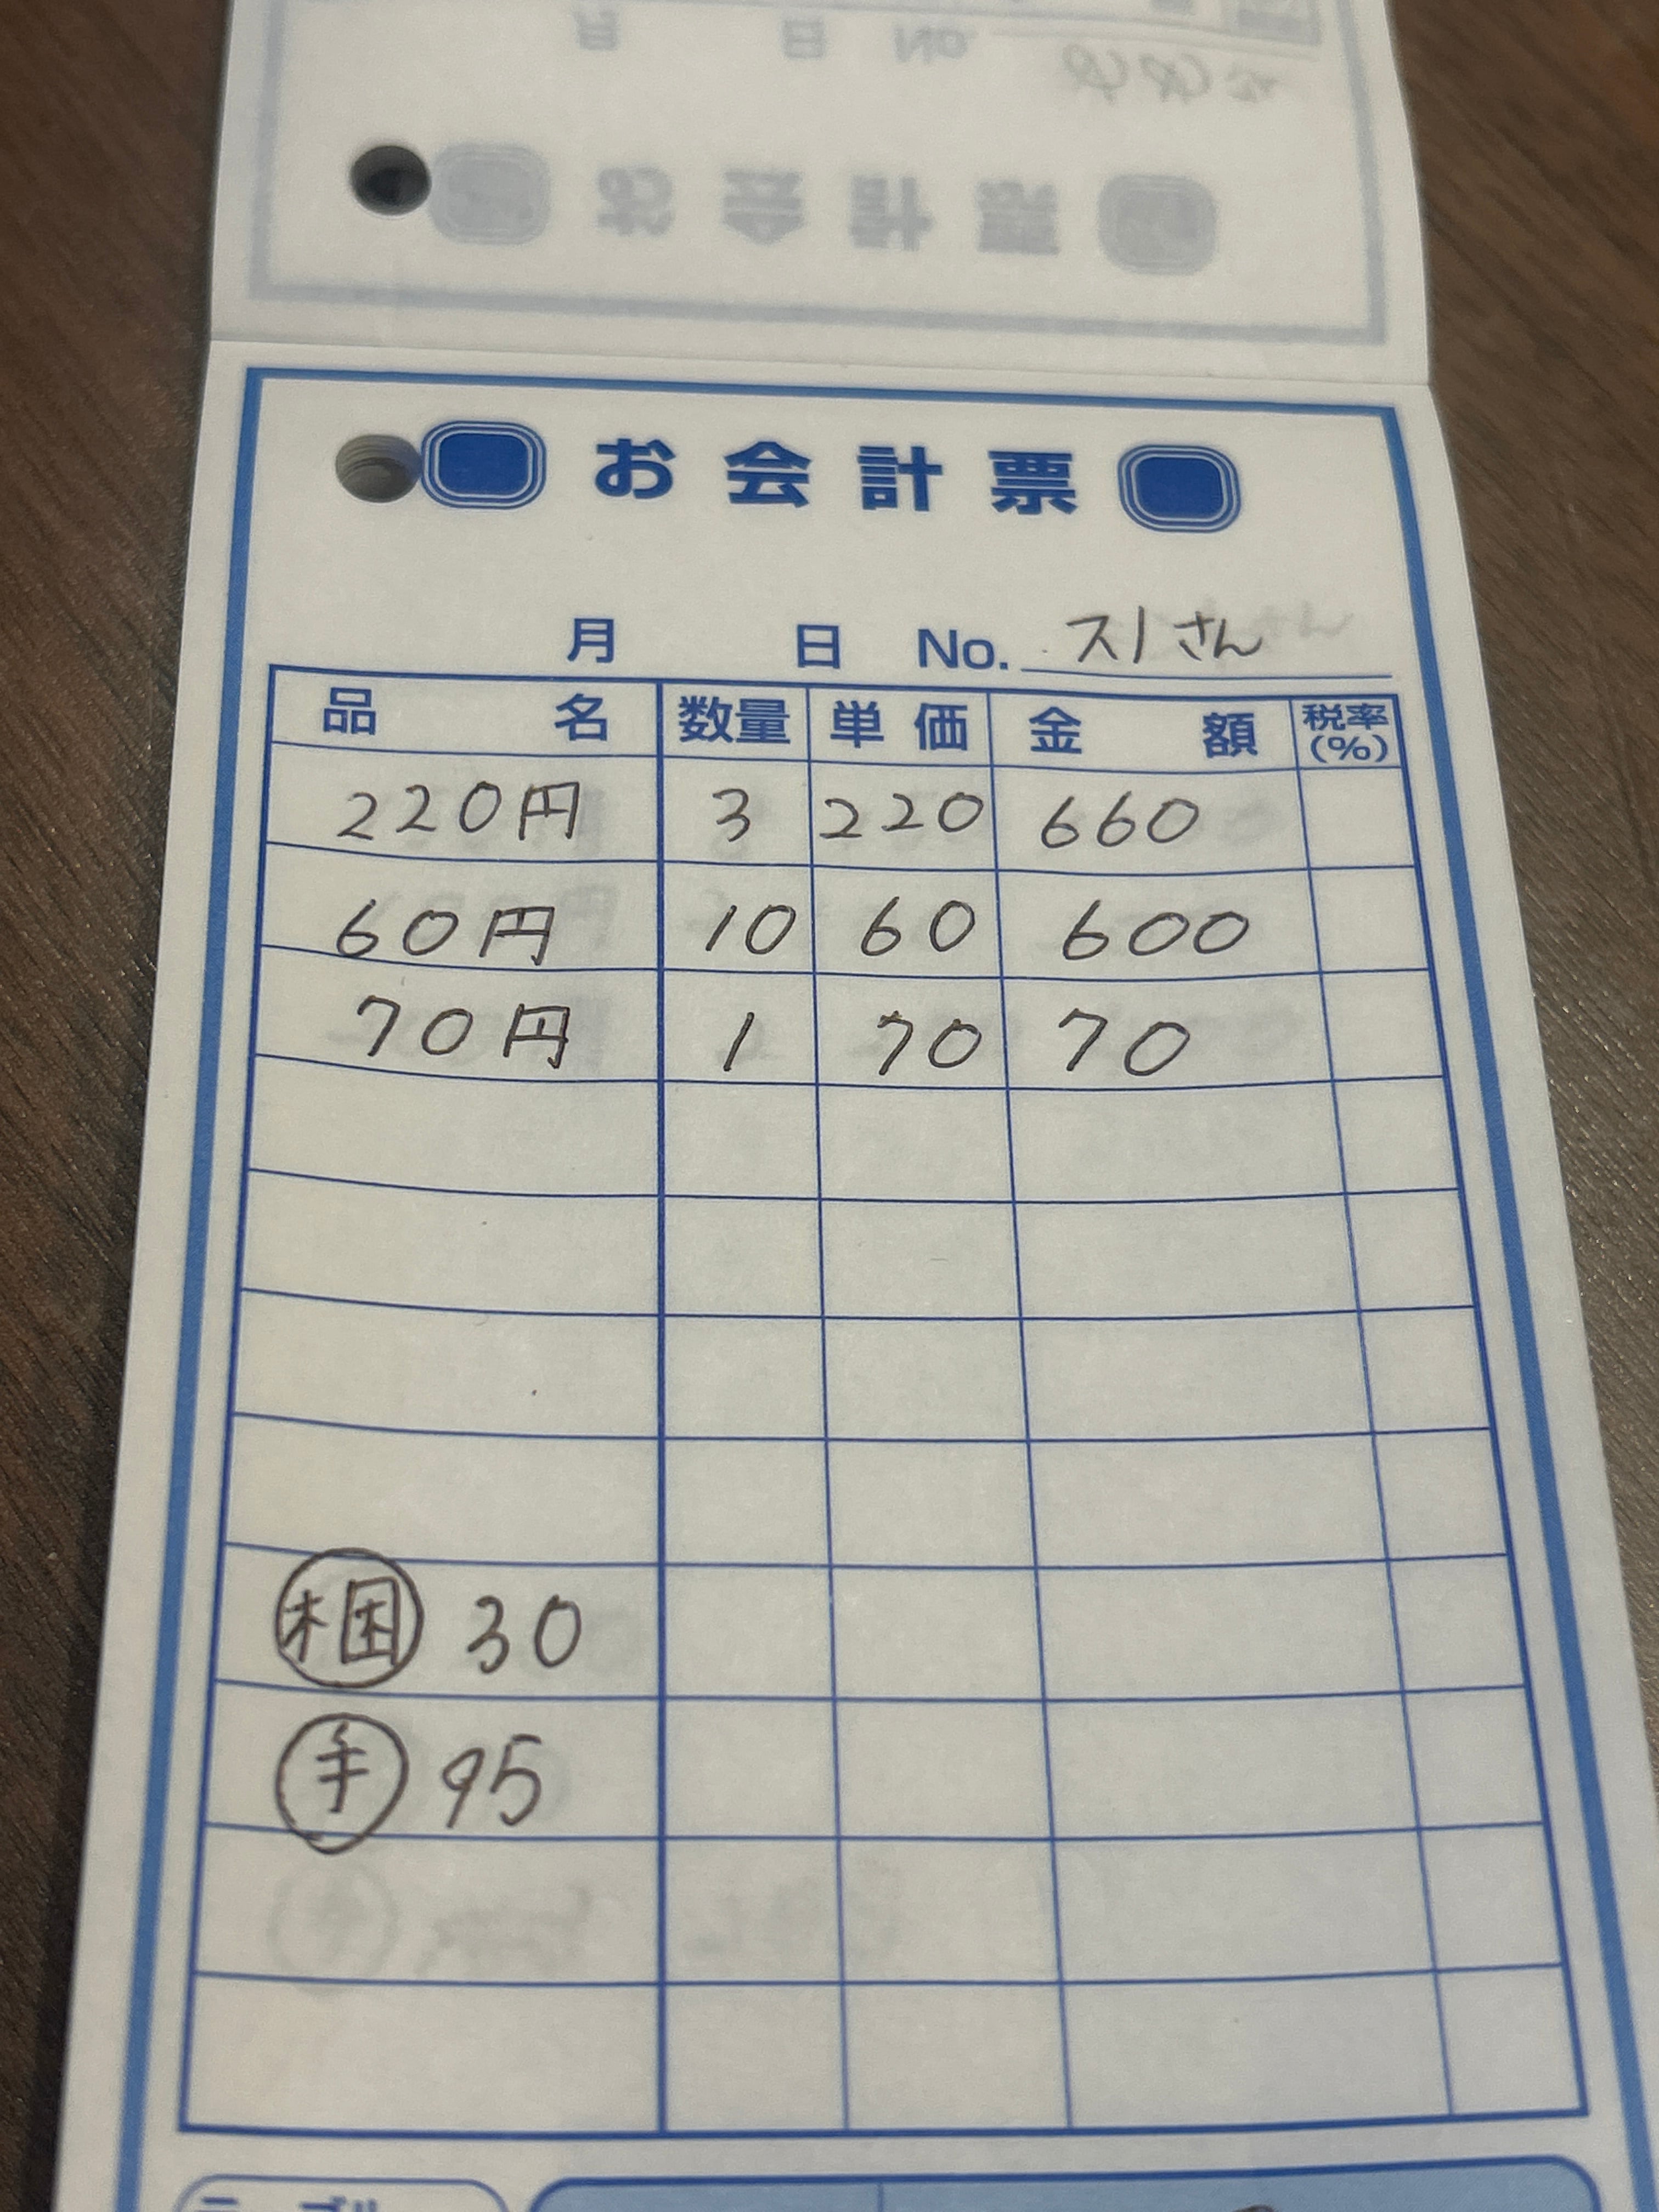 お会計票
月 日 No. スIさん
品名 数量 単価 金額 税率(%)
220円 3 220 660
60円 10 60 600
70円 1 70 70
梱 30
手 95